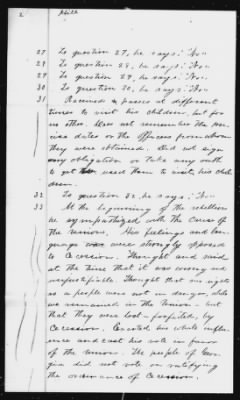 2
27 To question 27, he says: "No"
28 To question 28, he says: "No"
29 To question 29, he says: "No"
30 To question 30, he says: "No"
31 Received passes at different
times to visit his children, but for
no other. Does not remember the pre-
cise dates or the officers from whom
they were obtained. Did not sign
any obligation or take any oath
to get them used them to visit his chil-
dren.
32 To question 32, he says: "No"
33 At the beginning of the rebellion
he sympathized with the cause of
the Union. His feelings and lan-
guage were strongly opposed
to Secession. Thought and said
at the time that it was wrong and
unjustifiable. Thought that our rights
as a people were not in danger, while
we remained in the Union - but
that they were lost - forfeited, by
Secession. Exerted his whole influ-
ence and cast his vote in favor
of the Union. The people of Geor-
gia did not vote on ratifying
the ordinance of Secession.